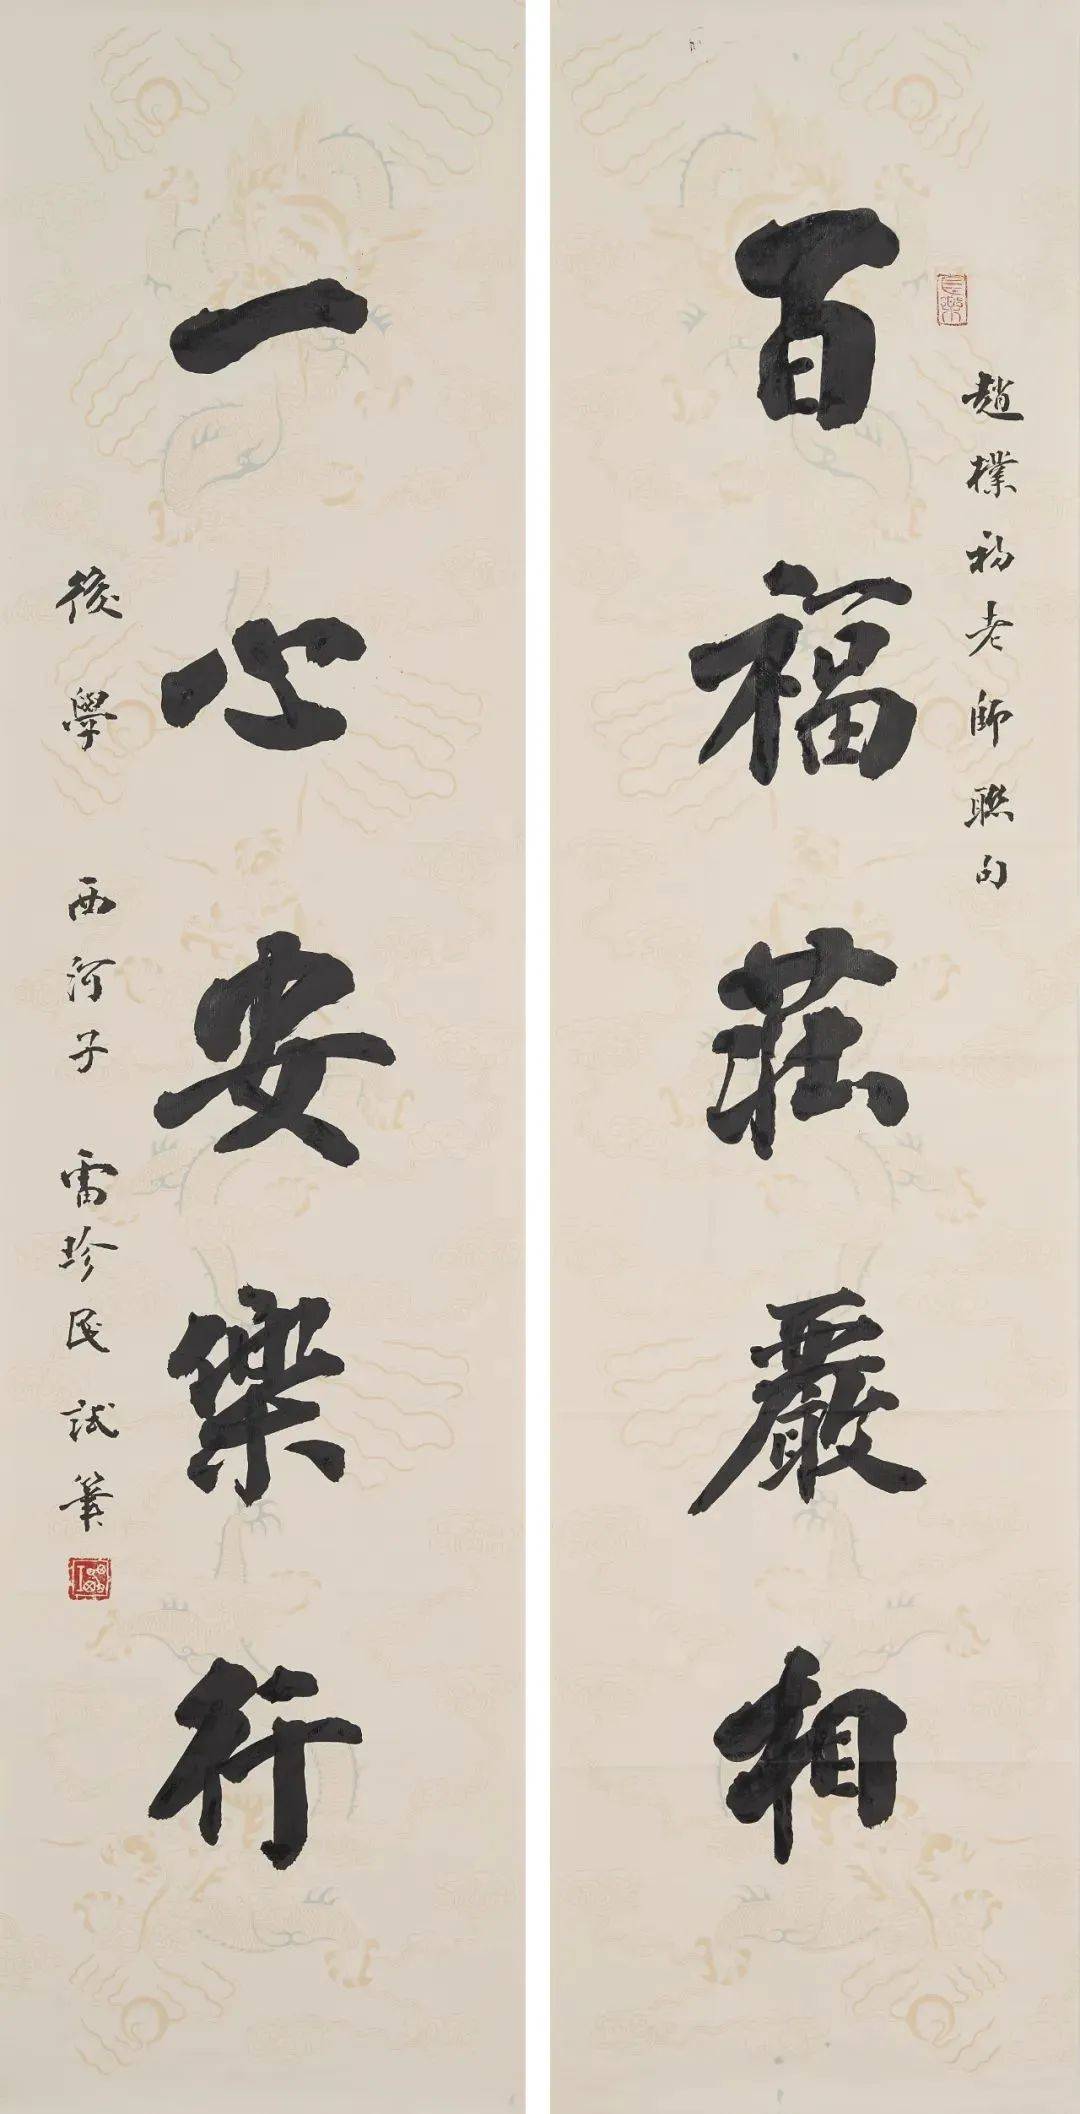 百福莊嚴相
趙樸初老師聯句
一心安樂行
後學 西河子 雷珍民 試筆
長樂